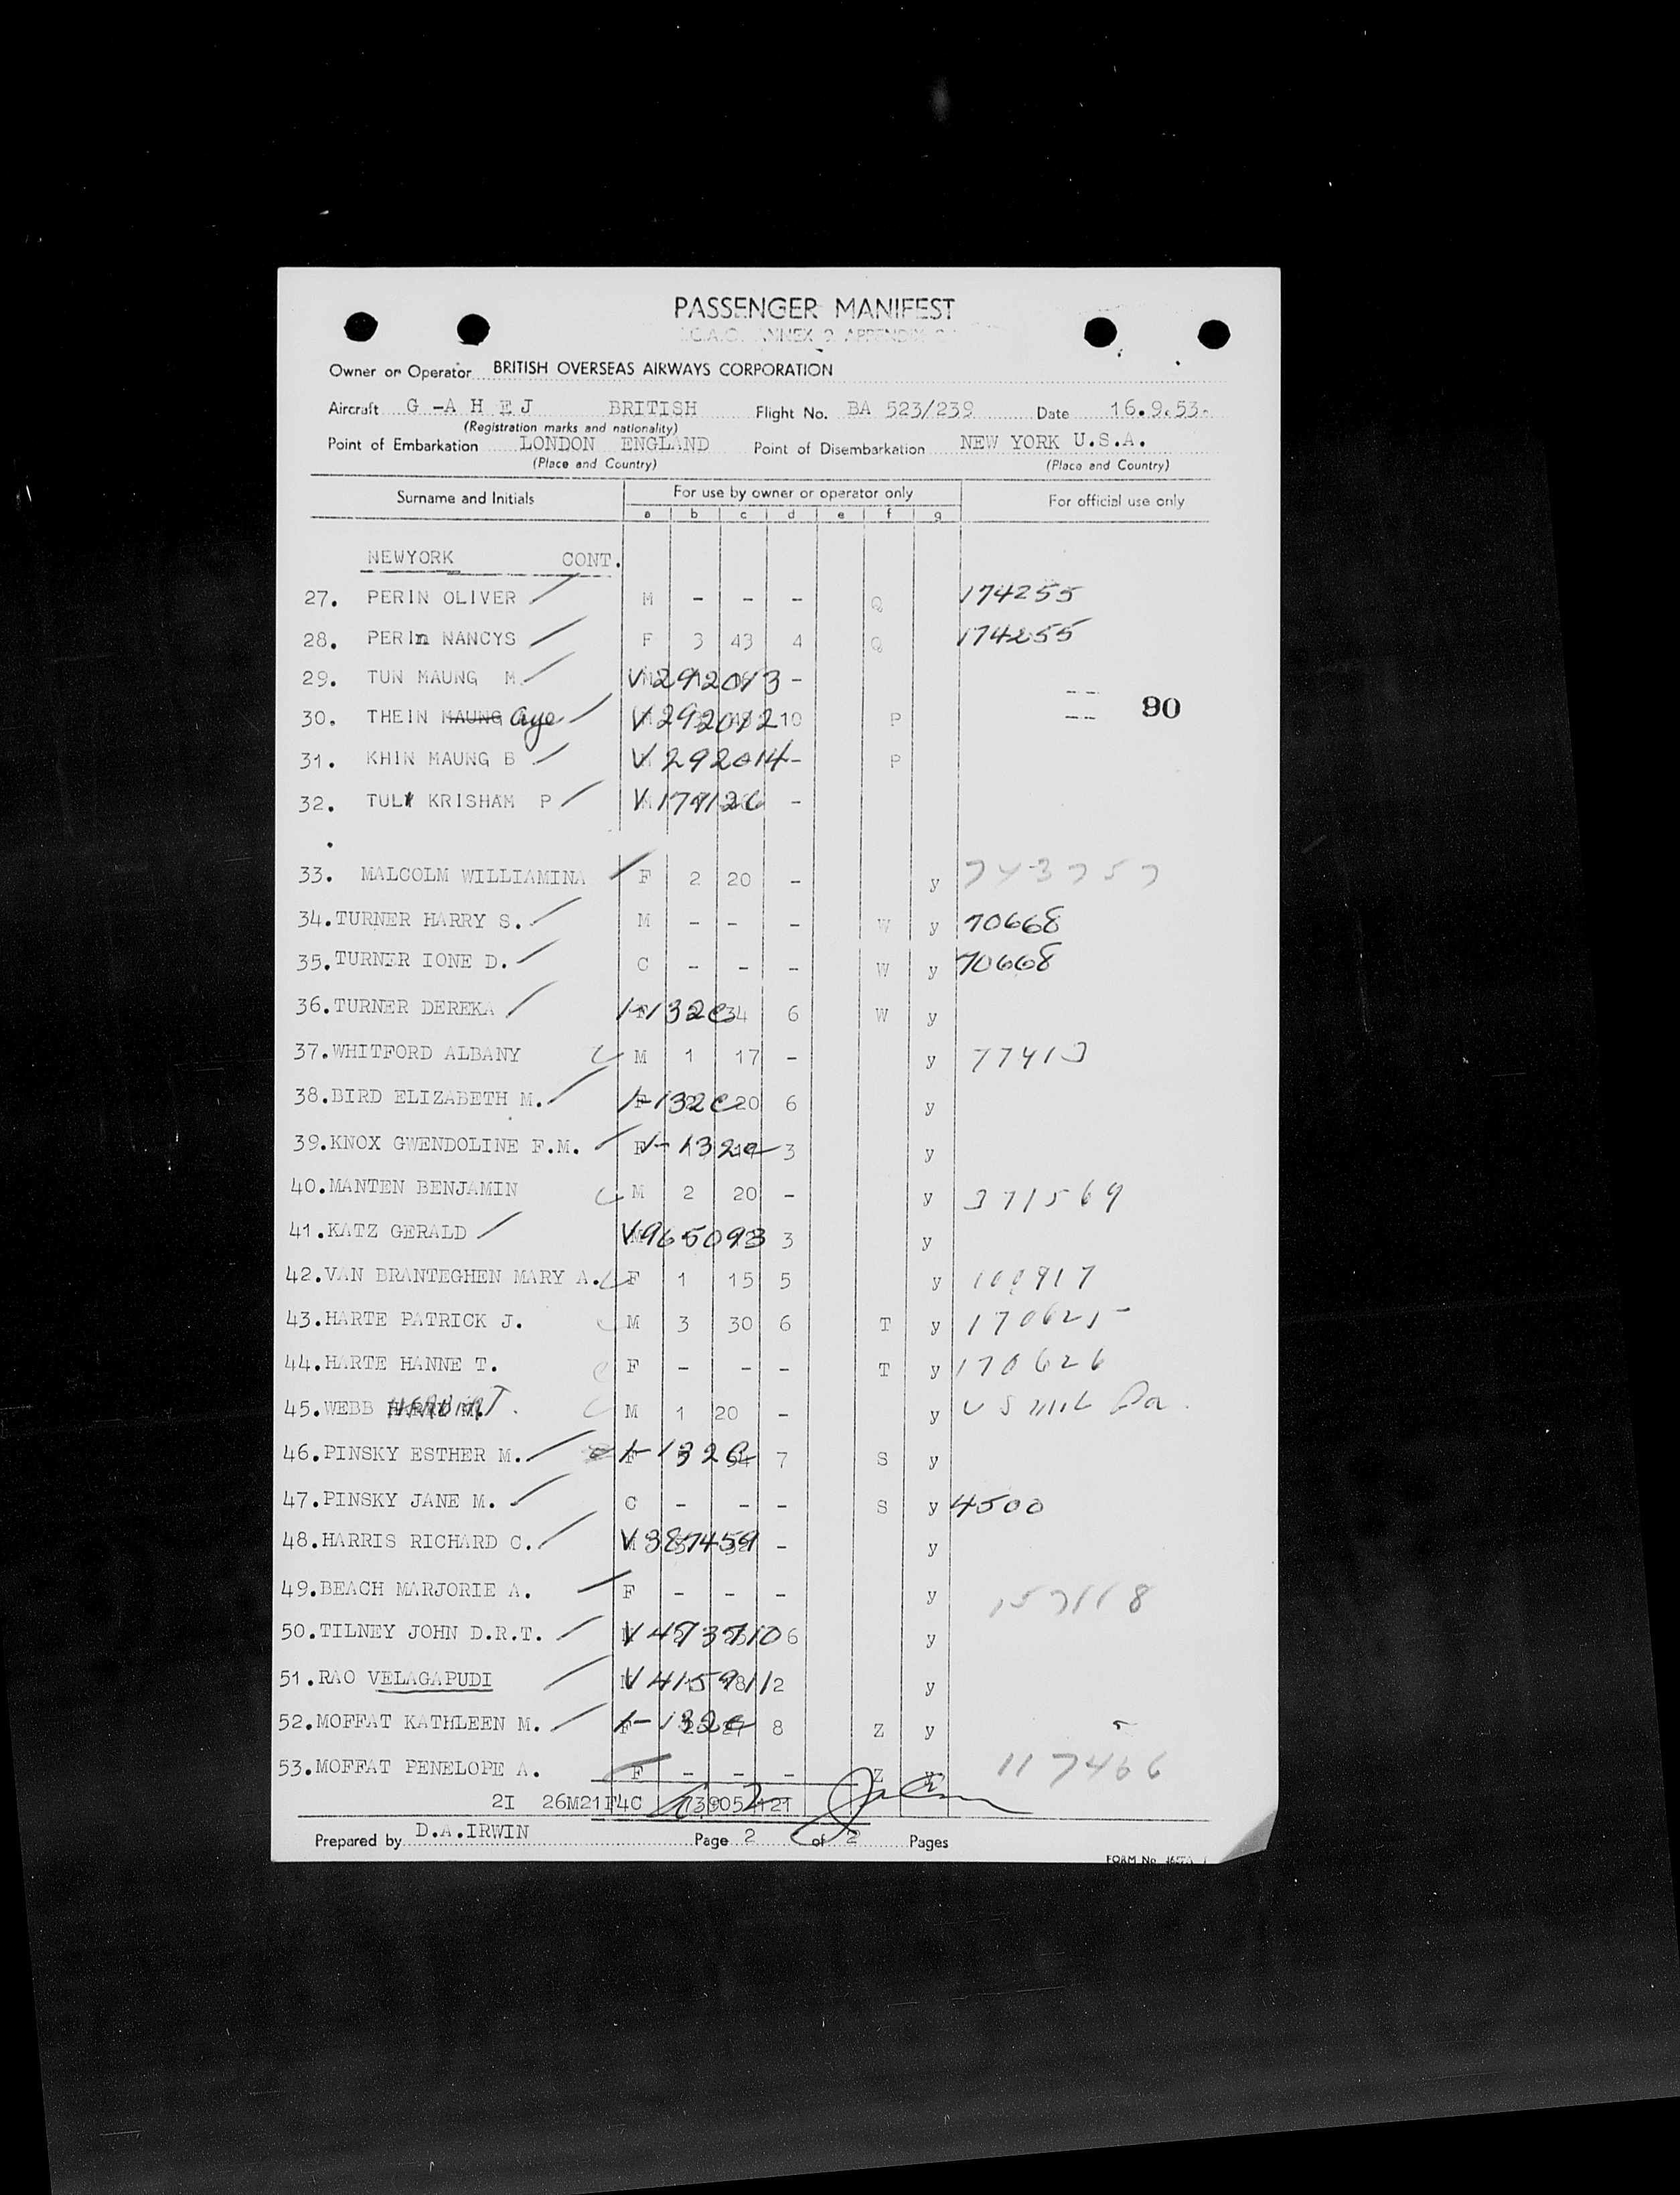 PASSENGER MANIFEST
Owner or Operator BRITISH OVERSEAS AIRWAYS CORPORATION
Aircraft G-AHEJ BRITISH Flight No. BA 523/239 Date 16.9.53.
(Registration marks and nationality)
Point of Embarkation LONDON ENGLAND Point of Disembarkation NEW YORK U.S.A.
(Place and Country) (Place and Country)
Surname and Initials For use by owner or operator only For official use only
a b c d e f g
NEWYORK CONT.
27. PERIN OLIVER M - - - Q 174255
28. PERIn NANCYS F 3 43 4 Q 174255
29. TUN MAUNG M V292013 -
30. THEIN MAUNG Aye V292012 10 P 90
31. KHIN MAUNG B V292014 - P
32. KRISHAM P V177126 -
33. MALCOLM WILLIAMINA F 2 20 - y 743757
34. TURNER HARRY S. M - - - W y 70668
35. TURNER IONE D. C - - - W y 70668
36. TURNER DEREKA 1-132c 34 6 W y
37. WHITFORD ALBANY M 1 17 - y 77413
38. BIRD ELIZABETH M. 1-132c 20 6 y
39. KNOX GWENDOLINE F.M. 1-132c 3 y
40. MANTEN BENJAMIN M 2 20 - y 371569
41. KATZ GERALD V965093 3 y
42. VAN BRANTEGHEN MARY A. F 1 15 5 y 100917
43. HARTE PATRICK J. M 3 30 6 T y 170625
44. HARTE HANNE T. F - - - T y 170626
45. WEBB M 1 20 - y U S Mil
46. PINSKY ESTHER M. 1-132c 7 S y
47. PINSKY JANE M. C - - - S y 4500
48. HARRIS RICHARD C. V387459 - y
49. BEACH MARJORIE A. F - - - y 157118
50. TILNEY JOHN D.R.T. V 6 y
51. RAO VELAGAPUDI V 2 y
52. MOFFAT KATHLEEN M. 1-132c 8 Z y
53. MOFFAT PENELOPE A. F - - - Z y 117466
2I 26M21F4C
Prepared by D.A.IRWIN Page 2 of 2 Pages
FORM No.